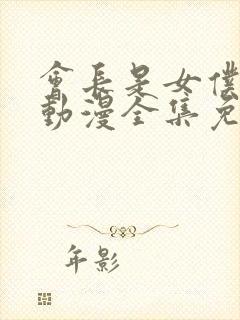 會長是女僕
動漫全集免
年影